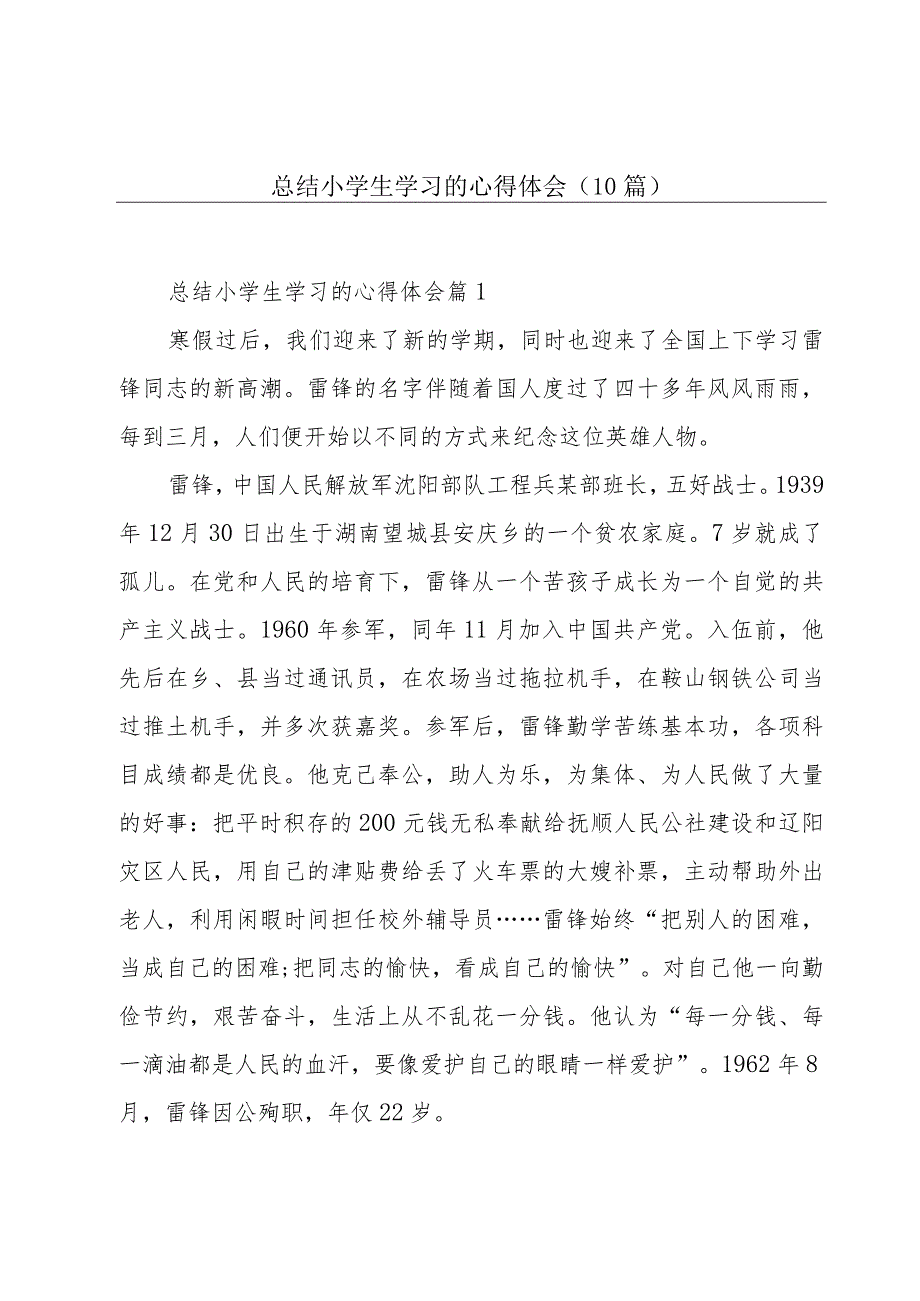 总结小学生学习的心得体会（10 篇）
总结小学生学习的心得体会篇 1
寒假过后，我们迎来了新的学期，同时也迎来了全国上下学习雷
锋同志的新高潮。雷锋的名字伴随着国人度过了四十多年风风雨雨，
每到三月，人们便开始以不同的方式来纪念这位英雄人物。
雷锋，中国人民解放军沈阳部队工程兵某部班长，五好战士。1939
年 12 月 30 日出生于湖南望城县安庆乡的一个贫农家庭。7 岁就成了
孤儿。在党和人民的培育下，雷锋从一个苦孩子成长为一个自觉的共
产主义战士。1960 年参军，同年 11 月加入中国共产党。入伍前，他
先后在乡、县当过通讯员，在农场当过拖拉机手，在鞍山钢铁公司当
过推土机手，并多次获嘉奖。参军后，雷锋勤学苦练基本功，各项科
目成绩都是优良。他克己奉公，助人为乐，为集体、为人民做了大量
的好事：把平时积存的 200 元钱无私奉献给抚顺人民公社建设和辽阳
灾区人民，用自己的津贴费给丢了火车票的大嫂补票，主动帮助外出
老人，利用闲暇时间担任校外辅导员……雷锋始终“把别人的困难，
当成自己的困难;把同志的愉快，看成自己的愉快”。对自己他一向勤
俭节约，艰苦奋斗，生活上从不乱花一分钱。他认为“每一分钱、每
一滴油都是人民的血汗，要像爱护自己的眼睛一样爱护”。1962 年 8
月，雷锋因公殉职，年仅 22 岁。